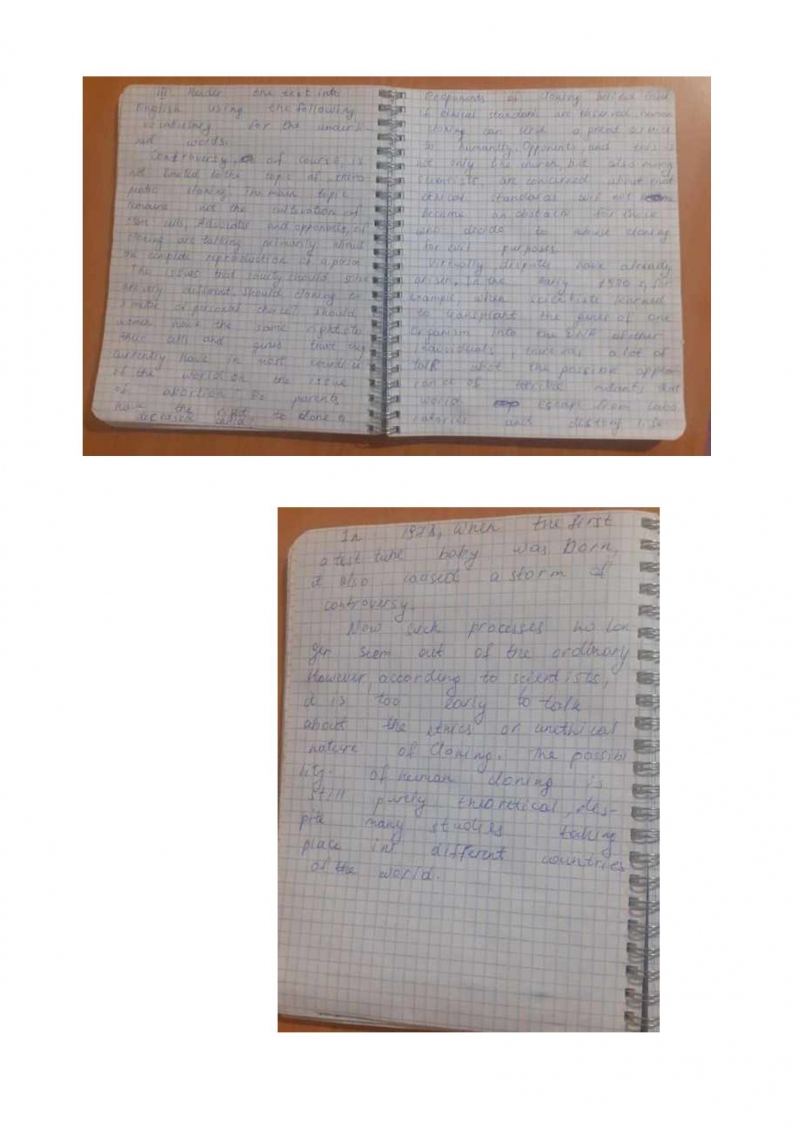 III. Render the text into
English using the following
vocabulary for the underli-
ned words.
Controversy, of course, is
not limited to the topic of thera
peutic cloning. The main topic
remains not the cultivation of
stem cells, Advocates and opponents, of
cloning are talking primarily about
the complete reproduction of a person
The issues that society should solve
are very different. Should cloning be
a matter of personal choice? Should
women have the same right to
their cells and genes that they
currently have in most countries
of the world on the issue
of abortion? Do parents
have the right to clone a
deceased child?
Proponents of cloning believe that
if ethical standards are observed, human
cloning can serve a great service
to humanity. Opponents, and this is
not only the church, but also many
scientists, are concerned about that
ethical standards will not
become an obstacle for those
who decide to use cloning
for evil purposes
Virtually, disputes have already
arisen. In the early 1980 s, for
example, when scientists learned
to transplant the genes of one
organism into the DNA of other
individuals, there was a lot of
talk about the possible appea-
rance of terrible mutants that
would escape from labo
ratories and destroy life
In 1978, when the first
a test tube baby was born,
it also caused a storm of
controversy.
Now such processes no lon
ger seem out of the ordinary
However, according to scientists,
it is too early to talk
about the ethics or unethical
nature of cloning. The possibi
lity of human cloning is
still purely theoretical, des-
pite many studies taking
place in different countries
of the world.